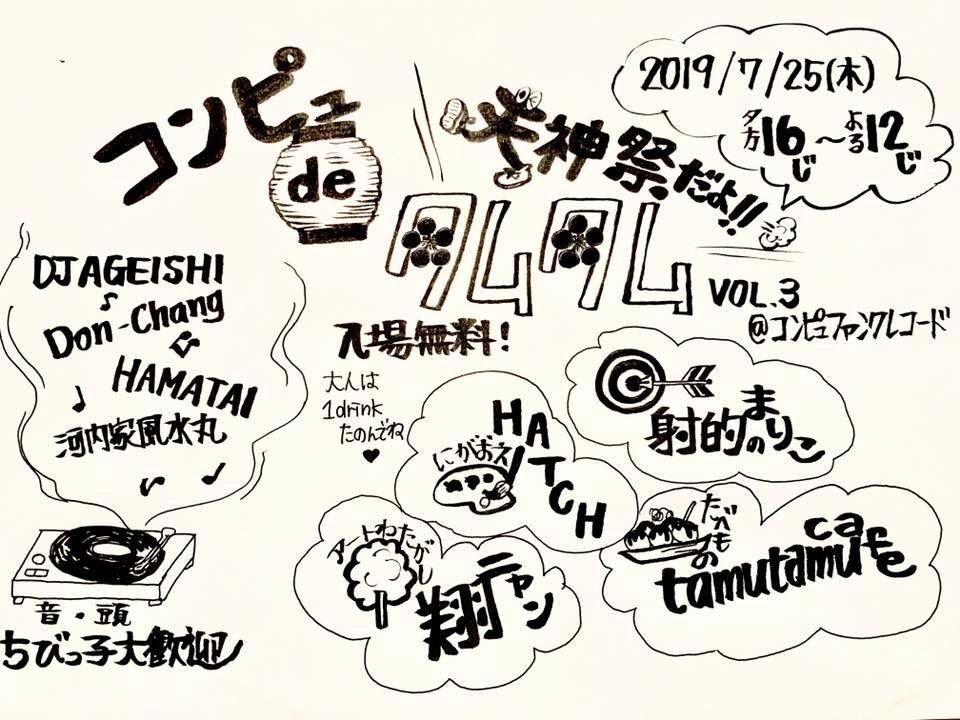 コンピュ
de
タムタム
VOL.3
天神祭だよ!!
2019/7/25(木)
夕方16じ〜よる12じ
@コンピュファンクレコード
入場無料!
大人は
1drink
たのんでね
DJ AGEISHI
Don-Chang
HAMATAI
河内家風水丸
音・頭
ちびっ子大歓迎
射的のまりこ
にがおえ
HATCH
アートわたがし
翔ニャン
たべもの
tamutamu cafe